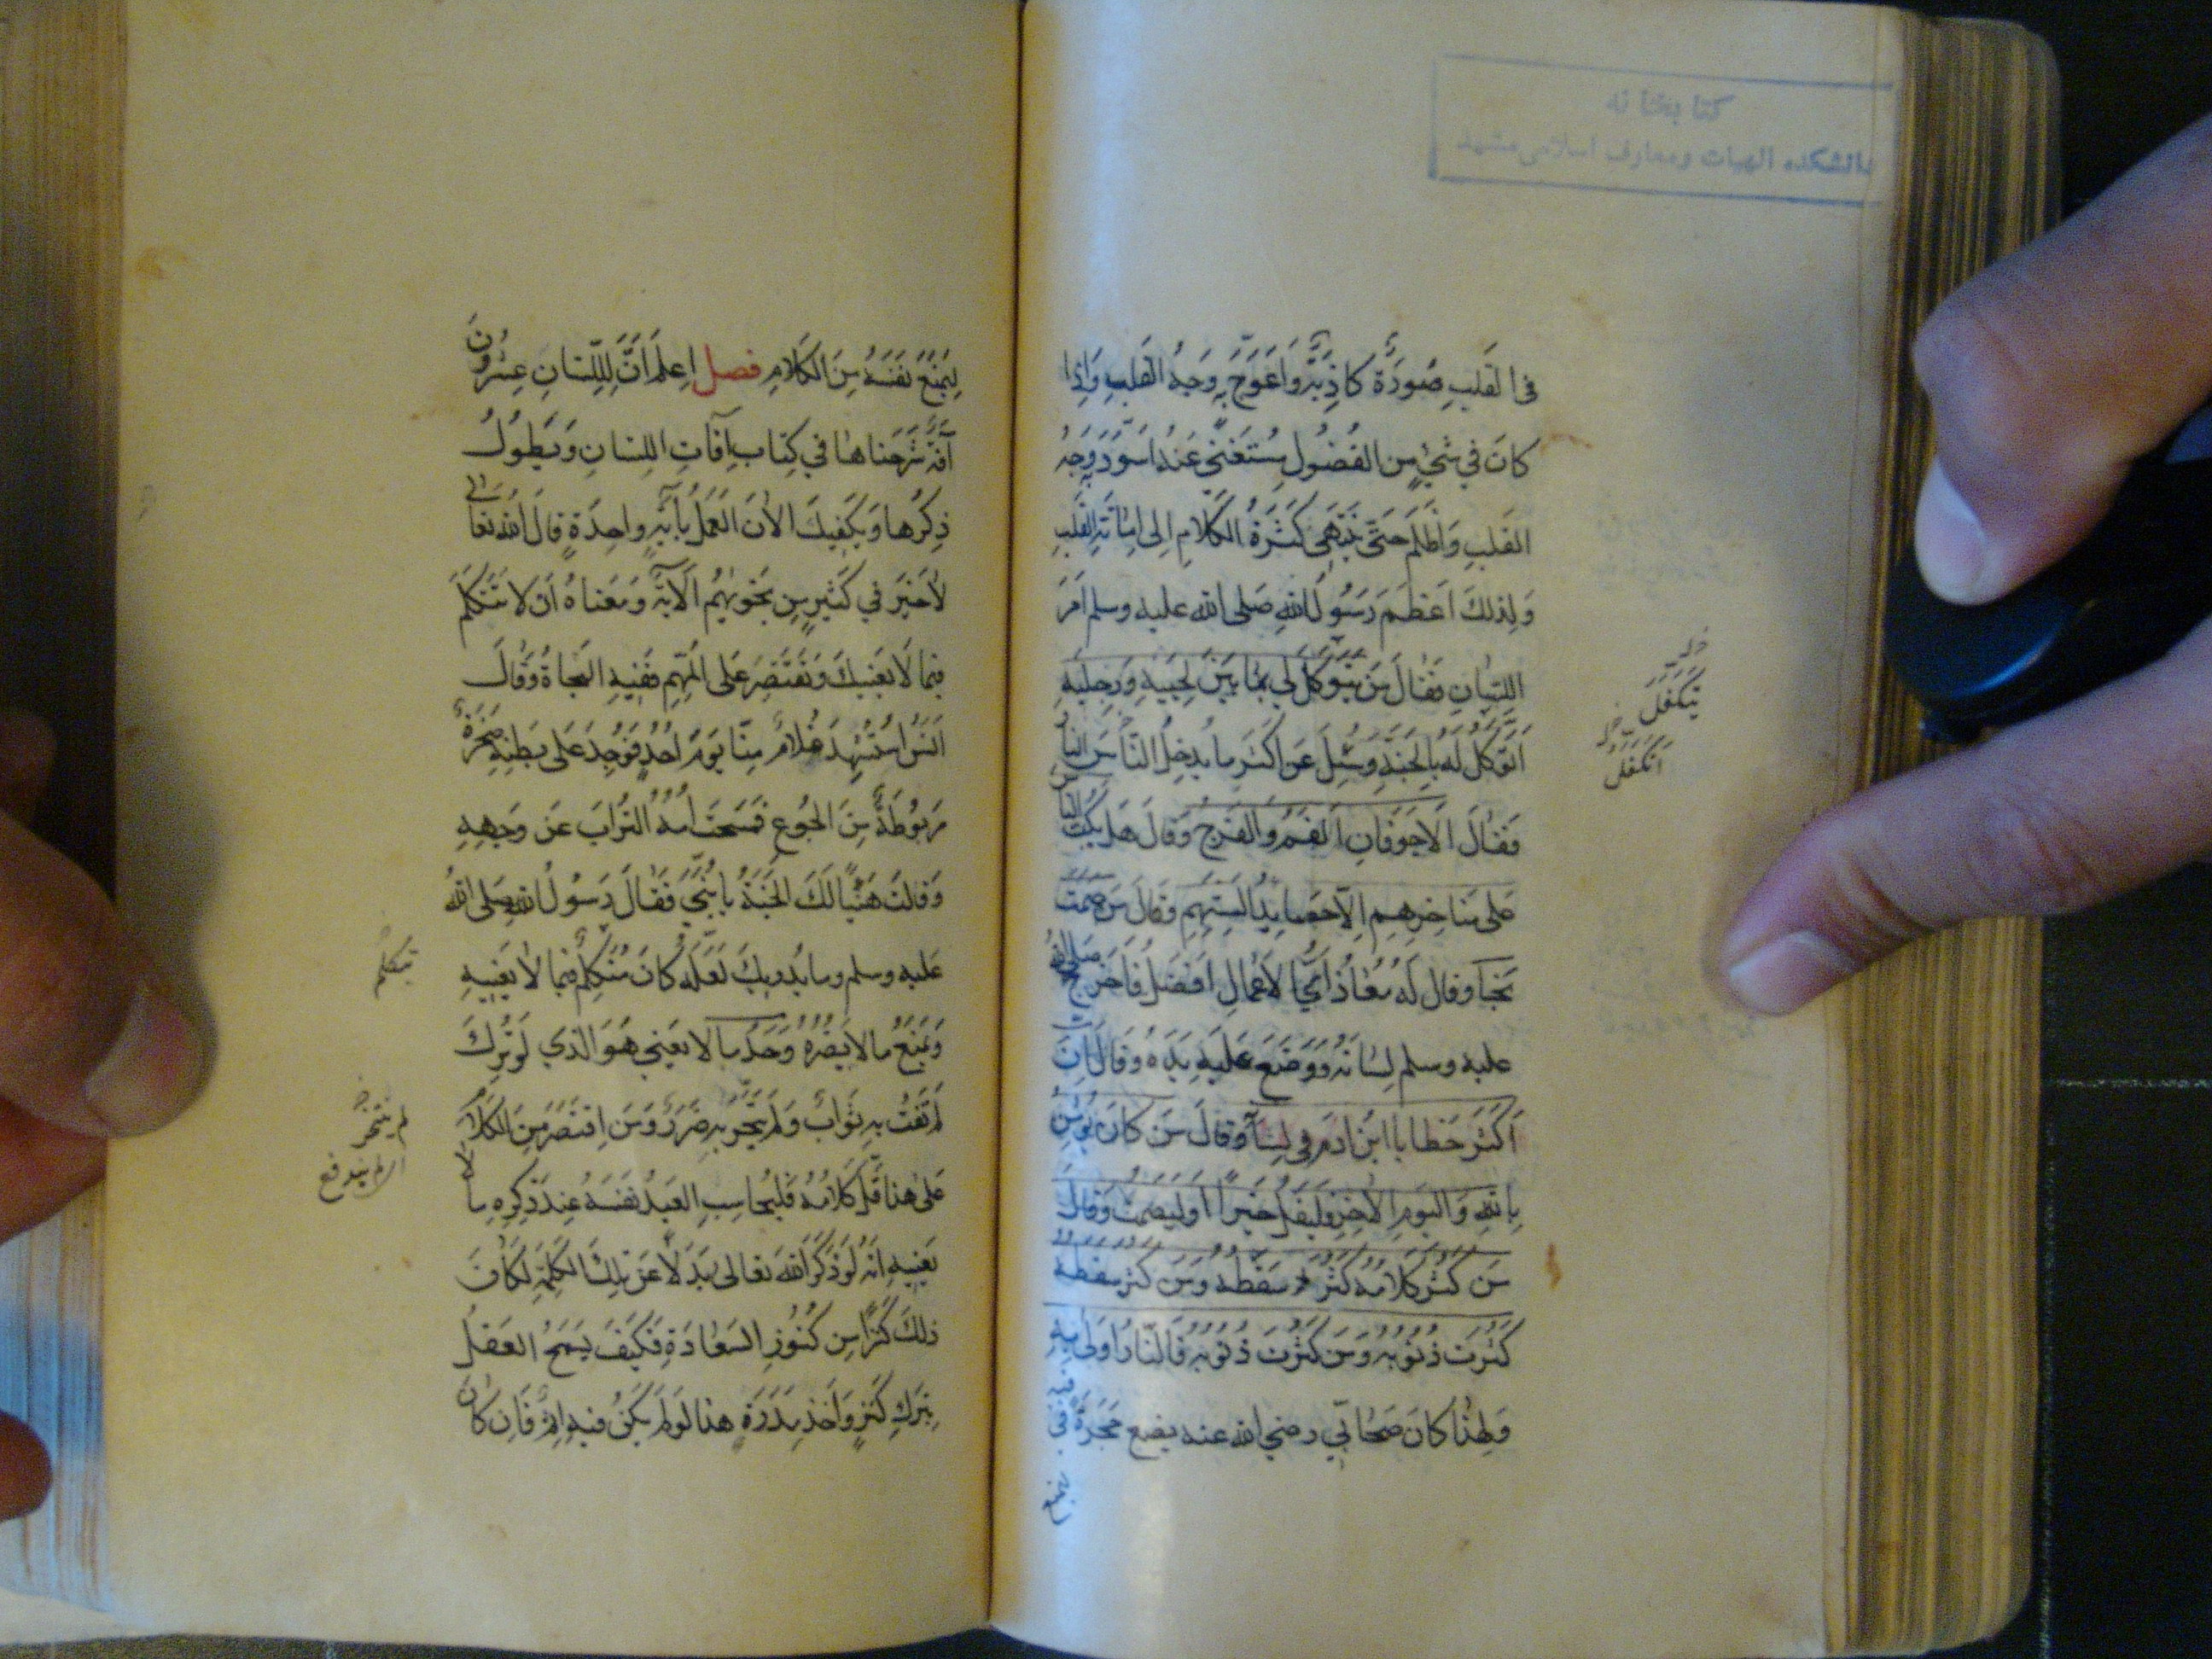 كتابخانه
دانشكده الهيات ومعارف اسلامى مشهد
فى القَلبِ صُورَةٌ كاذِبَةٌ وَاعْوَجَّ بِهِ وَجهُ القَلبِ وَاِذا
كانَ في شَيْءٍ مِن الفُضُولِ مُستَغنىً عَنهُ اسوَدَّ بِهِ وَجهُ
القَلبِ وَاَظْلَمَ حَتّى يَنتَهى كَثرَةُ الكَلامِ اِلى اِماتَةِ القَلبِ
وَلِذلكَ اَعظَمَ رَسُولُ اللهِ صَلى الله عليه وسلم اَمرَ
اللِّسانِ فَقالَ مَن يَتَوَكَّل لي بِما بَينَ لِحيَيهِ وَرِجليهِ
اَتَوَكَّل لَه بِالجَنَّةِ وَسُئِلَ عَن اَكثَرِ ما يُدخِلُ النّاسَ النارَ
فَقالَ الاَجوَفانِ الفَمُ وَالفَرجُ وَقالَ هَل يَكُبُّ الناسَ
عَلى مَناخِرِهِم اِلاّ حَصايِدُ اَلسِنَتِهِم وَقالَ مَن صَمَتَ
نَجَا وقال لَه مُعاذٌ اَيُّ الاَعمالِ اَفضَلُ فَاَخرَجَ صلى الله
عليه وسلم لِسانَهُ وَوَضَعَ عَلَيهِ يَدَه وَقالَ اِنَّ
اَكثَرَ خَطايا ابنِ ادَمَ في لِسانِه وَقالَ مَن كانَ يُؤمِنُ
بِاللهِ وَاليَومِ الاخِرِ فَليَقُل خَيراً اَو لِيَصمُت وَقالَ
مَن كَثُرَ كَلامُهُ كَثُرَ سَقَطُهُ وَمَن كَثُرَ سَقَطُهُ
كَثُرَت ذُنُوبُهُ وَمَن كَثُرَت ذُنُوبُهُ فَالنّارُ اَولى بِهِ
وَلِهذا كانَ صَحابِي رضي الله عنه يضع حَجَرَةً في فيه
يَتَكَفَّلُ
اَتَكَفَّلُ
لِيَمنَعَ نَفسَهُ مِنَ الكَلامِ فصل اِعلَم اَنَّ لِلِّسانِ عِشرُونَ
آفَةً شَرَحناها في كِتابِ آفاتِ اللِسانِ وَيَطولُ
ذِكرُها وَيَكفِيكَ الآنَ العَمَلُ بِآيَةٍ واحِدَةٍ قالَ الله تعالى
لاخَيرَ في كَثيرٍ مِن نَجويهُم الآيَة وَمَعناهُ اَن لا تَتَكَلَّمَ
فِيما لا يَعنيكَ وَتَقتَصِرَ عَلى المُهِمِّ فَفيهِ النَجاةُ وَقالَ
اَنَسُ استُشهِدَ غُلامٌ مِنّا يَومَ اُحُدٍ فَوُجِدَ عَلى بَطنِهِ صَخرَةٌ
مَربُوطَةٌ مِنَ الجُوعِ فَمَسَحَت اُمُّهُ التُّرابَ عَن وَجهِهِ
وَقالَت هَنيئاً لَكَ الجَنَّةُ يا بُنَيَّ فَقالَ رَسُولُ الله صَلى اللهُ
عليه وسلم وما يُدريكَ لَعَلَّهُ كانَ مُتَكلِّم فيما لا يَعنيهِ
وَيَمنَعُ ما لا يَضُرُّهُ وَحَدُّ ما لا يَعنِي هُوَ الَّذي لَو تُرِكَ
لَم تَفُت بِهِ ثَوابٌ وَلَم يَنجَرَّ بِهِ ضَرَرٌ وَمَن اِقتَصَرَ مِنَ الكَلامِ
عَلى هذا قَلَّ كَلامُهُ فَليُحاسِبِ العَبدُ نَفسَهُ عِندَ ذِكرِهِ ما لا
يَعنِيهِ اِنَّهُ لَو ذَكَرَ اللهَ تَعالى بَدَلاً عَن تِلكَ الكَلِمَةِ لَكانَ
ذلِكَ كَنزاً مِن كُنُوزِ السَعادَةِ فَكَيفَ يَسمَحُ العَقلُ
بِتَركِ كَنزٍ وَاَخذِ مَدَرَةٍ هذا لَو لَم يَكُن فيهِ اِثمٌ فَاِن كانَ
يتكلم